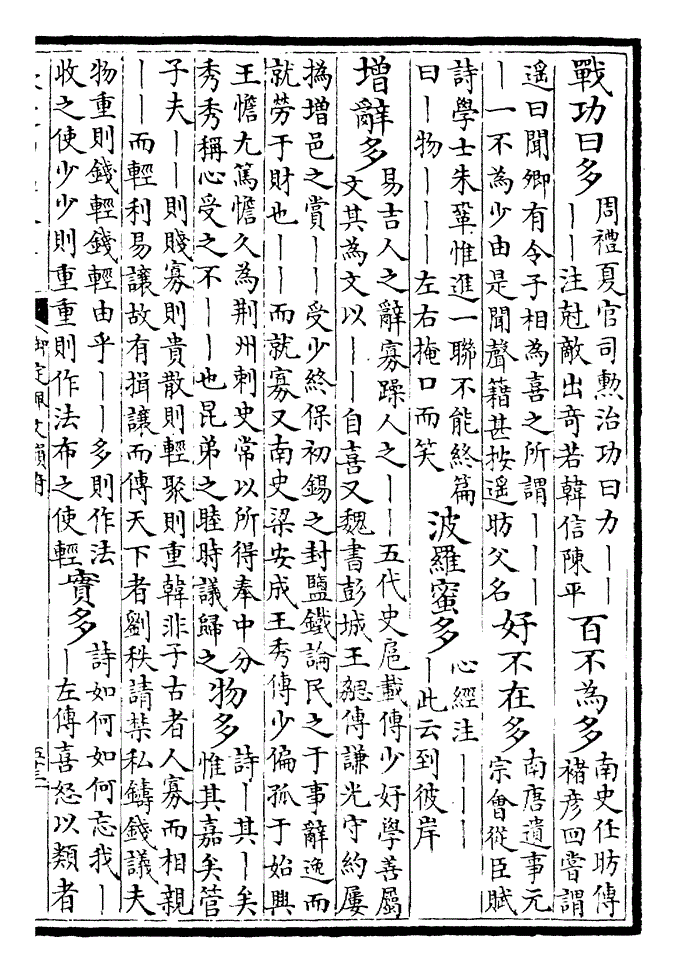 戰功曰多 周禮夏官司勲治功曰力丨丨
丨丨注尅敵出奇若韓信陳平
百不為多 南史任昉傳
褚彦回嘗謂
遥曰聞卿有令子相為喜之所謂丨丨丨
丨一不為少由是聞聲籍甚按遥昉父名
好不在多 南唐遺事元
宗會從臣賦
詩學士朱鞏惟進一聯不能終篇
曰丨物丨丨丨左右掩口而笑
波羅蜜多 心經注丨丨丨
丨此云到彼岸
增辭多 易吉人之辭寡躁人之丨丨五代史扈載傳少好學善屬
文其為文以丨丨自喜又魏書彭城王勰傳謙光守約屢
撝增邑之賞丨丨受少終保初錫之封鹽鐵論民之于事辭逸而
就勞于財也丨丨而就寡又南史梁安成王秀傳少偏孤于始興
王憺尤篤憺久為荆州刺史常以所得奉中分
秀秀稱心受之不丨丨也昆弟之睦時議歸之
物多 詩丨其丨矣
惟其嘉矣管
子夫丨丨則賤寡則貴散則輕聚則重韓非子古者人寡而相親
丨丨而輕利易讓故有揖讓而傳天下者劉秩請禁私鑄錢議夫
物重則錢輕錢輕由乎丨丨多則作法
收之使少少則重重則作法布之使輕
實多 詩如何如何忘我丨
丨左傳喜怒以類者
御定佩文韻府